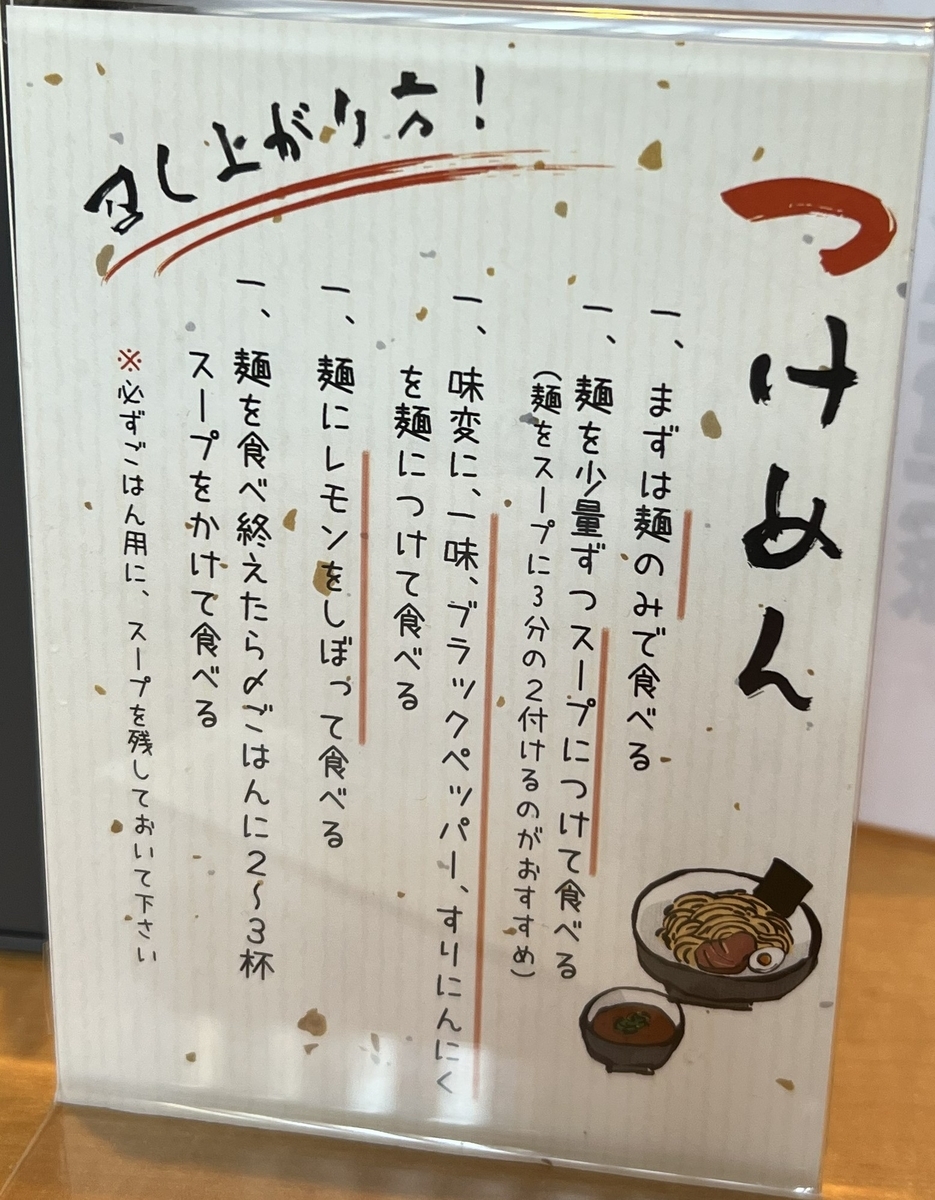 つけめん
召し上がり方！
一、まずは麺のみで食べる
一、麺を少量ずつスープにつけて食べる
(麺をスープに3分の2付けるのがおすすめ)
一、味変に、一味、ブラックペッパー、すりにんにく
を麺につけて食べる
一、麺にレモンをしぼって食べる
一、麺を食べ終えたら〆ごはんに2～3杯
スープをかけて食べる
※必ずごはん用に、スープを残しておいて下さい